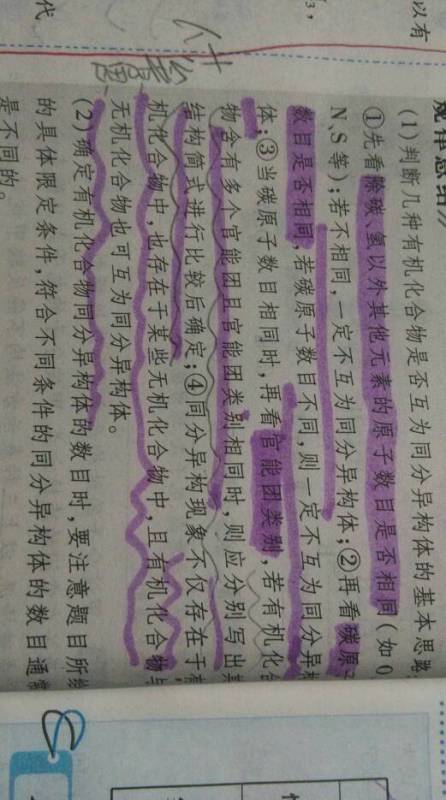 以有
规律总结》
(1)判断几种有机化合物是否互为同分异构体的基本思路
①先看除碳、氢以外其他元素的原子数目是否相同(如O
N、S等);若不相同,一定不互为同分异构体;②再看碳原
数目是否相同,若碳原子数目不同,则一定不互为同分异构
体;③当碳原子数目相同时,再看官能团类别,若有机化合
物含有多个官能团且官能团类别相同时,则应分别写出其
结构简式进行比较后确定;④同分异构现象不仅存在于有
机化合物中,也存在于某些无机化合物中,且有机化合物与
无机化合物也可互为同分异构体。
什么意思
(2)确定有机化合物同分异构体的数目时,要注意题目所给
的具体限定条件,符合不同条件的同分异构体的数目通常
是不同的。
代